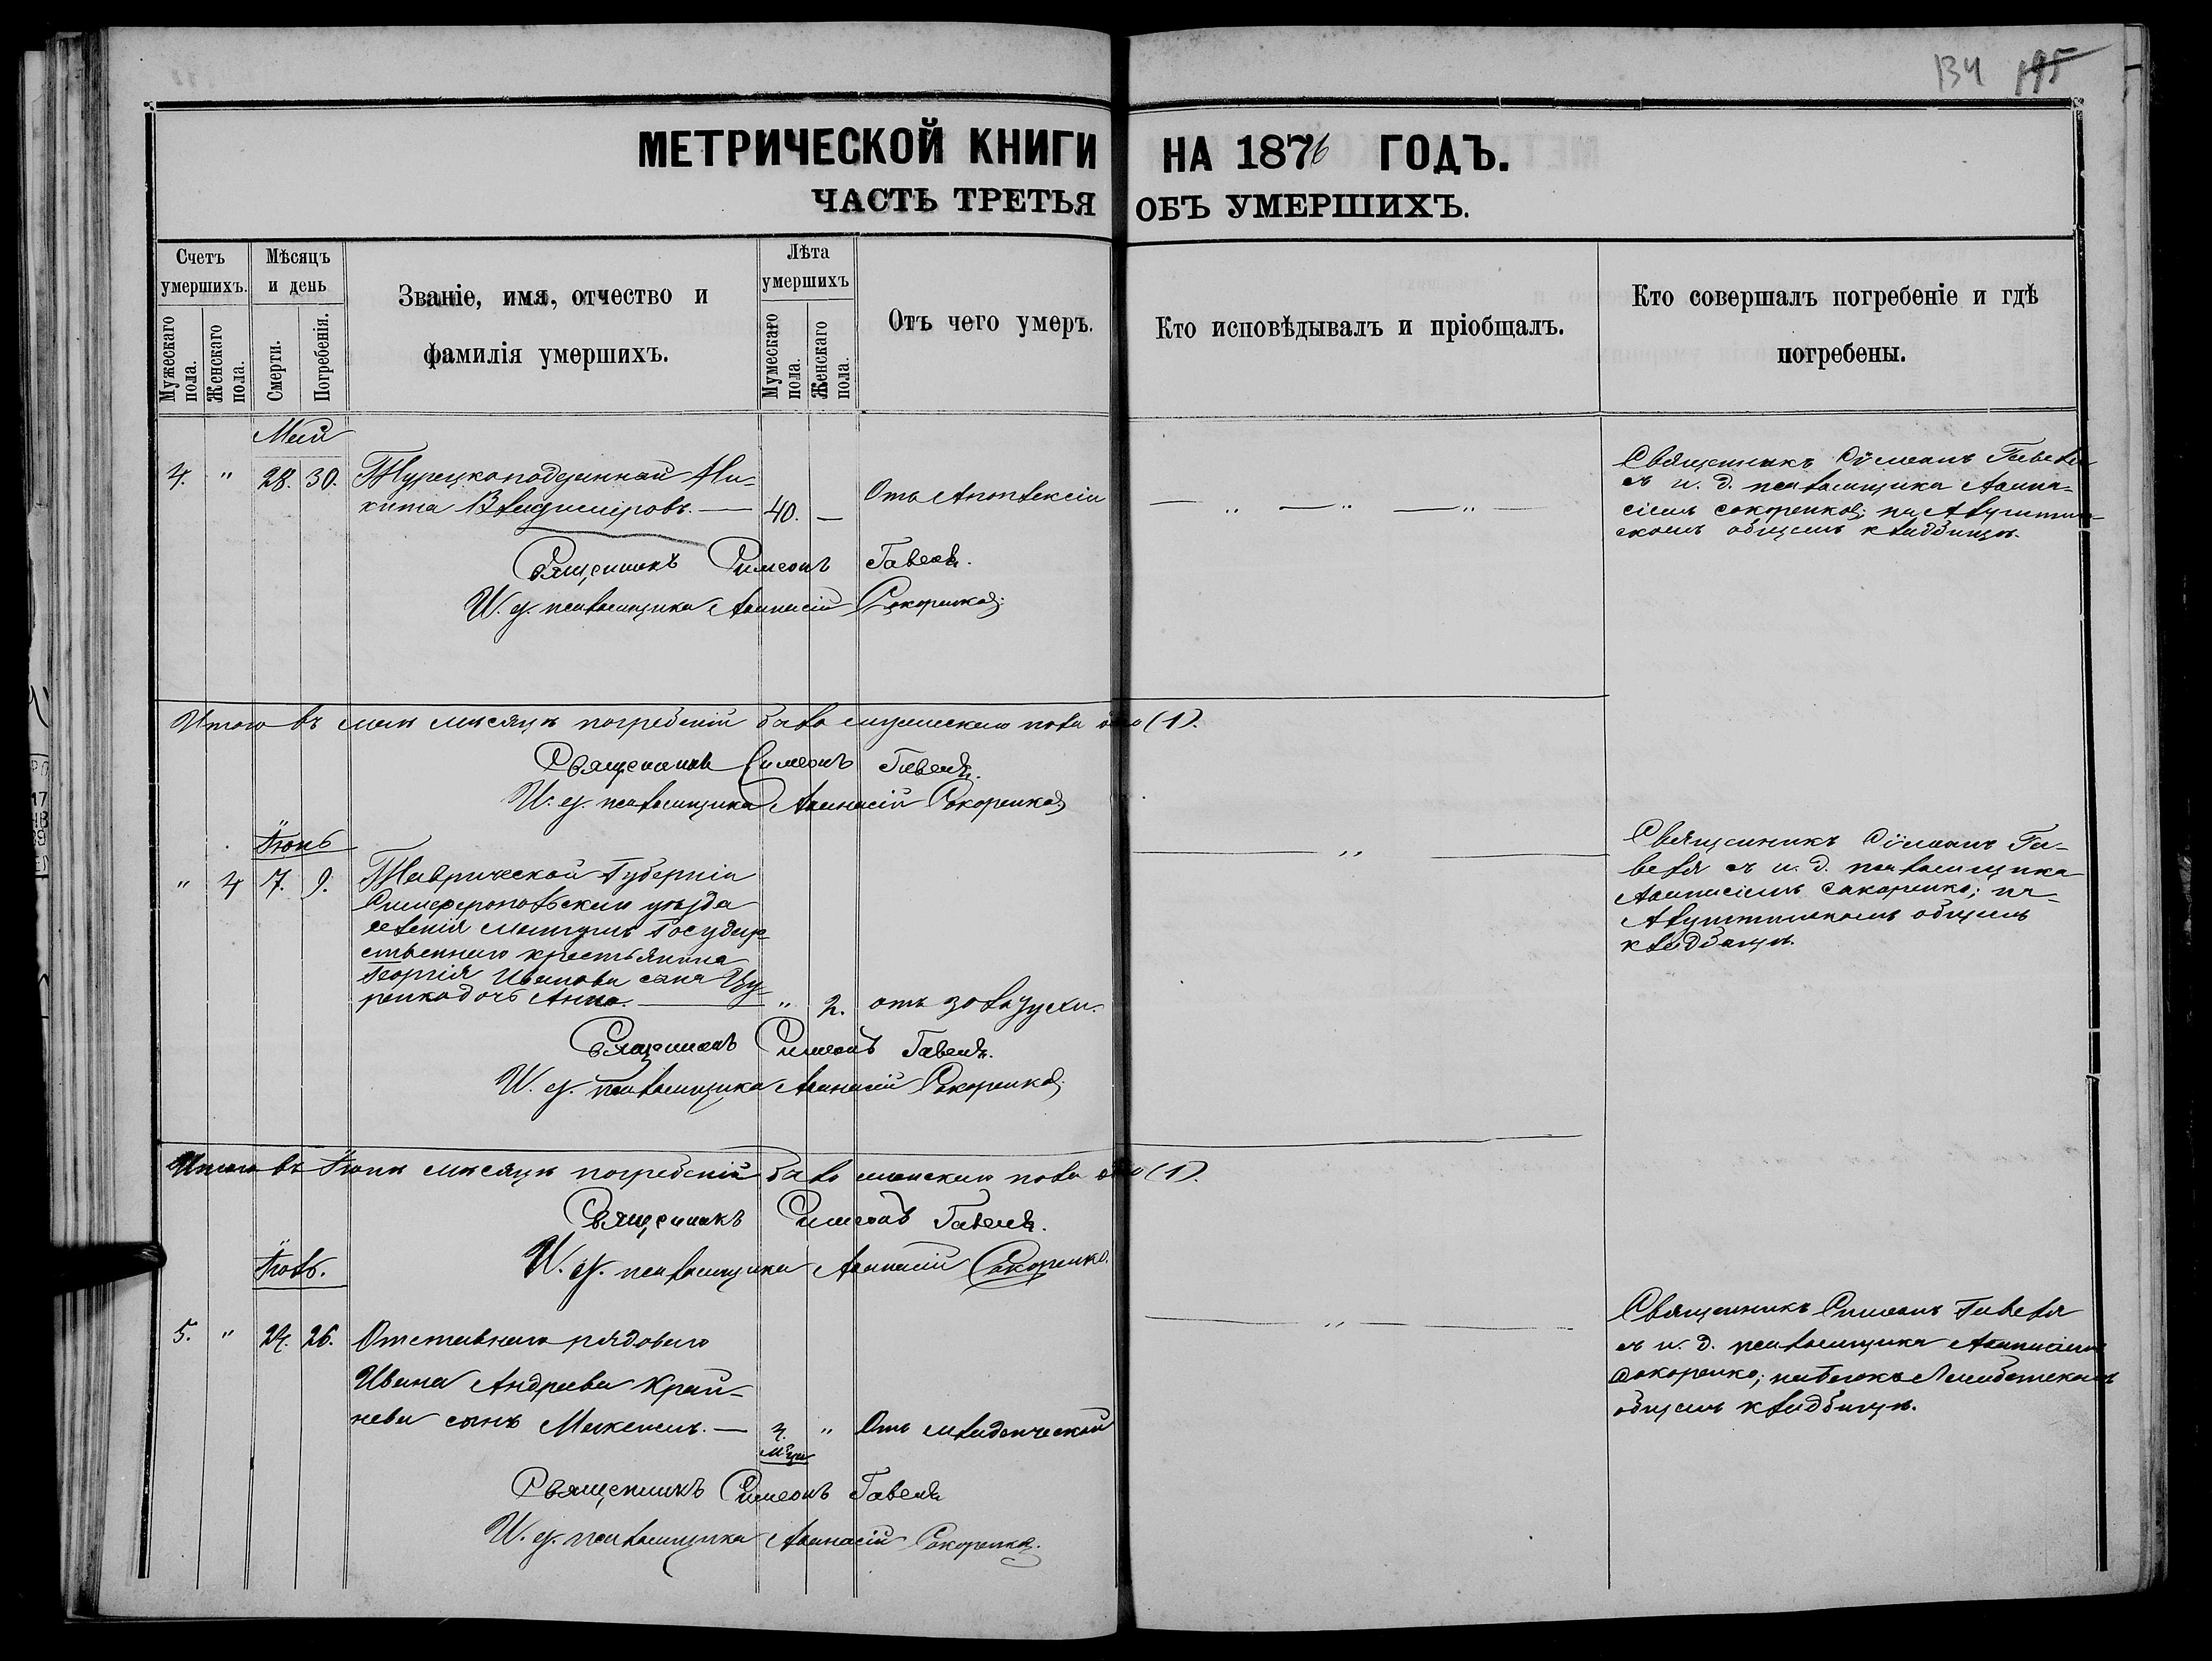 134 195
МЕТРИЧЕСКОЙ КНИГИ НА 1876 ГОДЪ.
ЧАСТЬ ТРЕТЬЯ ОБЪ УМЕРШИХЪ.
Счетъ умершихъ.
Мужескаго пола.
Женскаго пола.
Мѣсяцъ и день
Смерти.
Погребенія.
Званіе, имя, отчество и
фамилія умершихъ.
Лѣта умершихъ
Мумескаго пола.
Женскаго пола.
Отъ чего умеръ.
Кто исповѣдывалъ и пріобщалъ.
Кто совершалъ погребеніе и гдѣ
погребены.
Май
4. " 28. 30. Турецкоподданный Ни-
кита Владиміровъ. — 40. — Отъ Апоплексіи
Священникъ Сѵмеонъ Гавеля
съ и. д. псаломщика Аѳана-
сіемъ Сокоренко; на
скомъ общемъ кладбищѣ.
Священникъ Симеонъ Гавеля.
И. д. псаломщика Аѳанасій Сокоренко
Итого въ маѣ мѣсяцѣ погребеній было мужескаго пола одно (1).
Священникъ Симеонъ Гавеля.
И. д. псаломщика Аѳанасій Сокоренко
Іюнь
" 4 7. 9. Таврической Губерніи
Симферопольскаго уѣзда
селенія Мангушъ Государ-
ственнаго крестьянина
Георгія Иванова сына Цу-
ренко дочь Анна. — " 2. отъ золотухи.
Священникъ Сѵмеонъ Га-
веля съ и. д. псаломщика
Аѳанасіемъ Сокоренко; на
общемъ
кладбищѣ.
Священникъ Симеонъ Гавеля.
И. д. псаломщика Аѳанасій Сокоренко
Итого въ Іюнѣ мѣсяцѣ погребеній было женскаго пола одно (1).
Священникъ Симеонъ Гавеля.
И. д. псаломщика Аѳанасій Сокоренко.
Іюль.
5. " 24. 26. Отставнаго рядоваго
Ивана Андреева Край-
нева сынъ — " Отъ младенческой
мца
Священникъ Симеонъ Гавеля
съ и. д. псаломщика Аѳанасіемъ
Сокоренко;
общемъ кладбищѣ.
Священникъ Симеонъ Гавеля
И. д. псаломщика Аѳанасій Сокоренко.